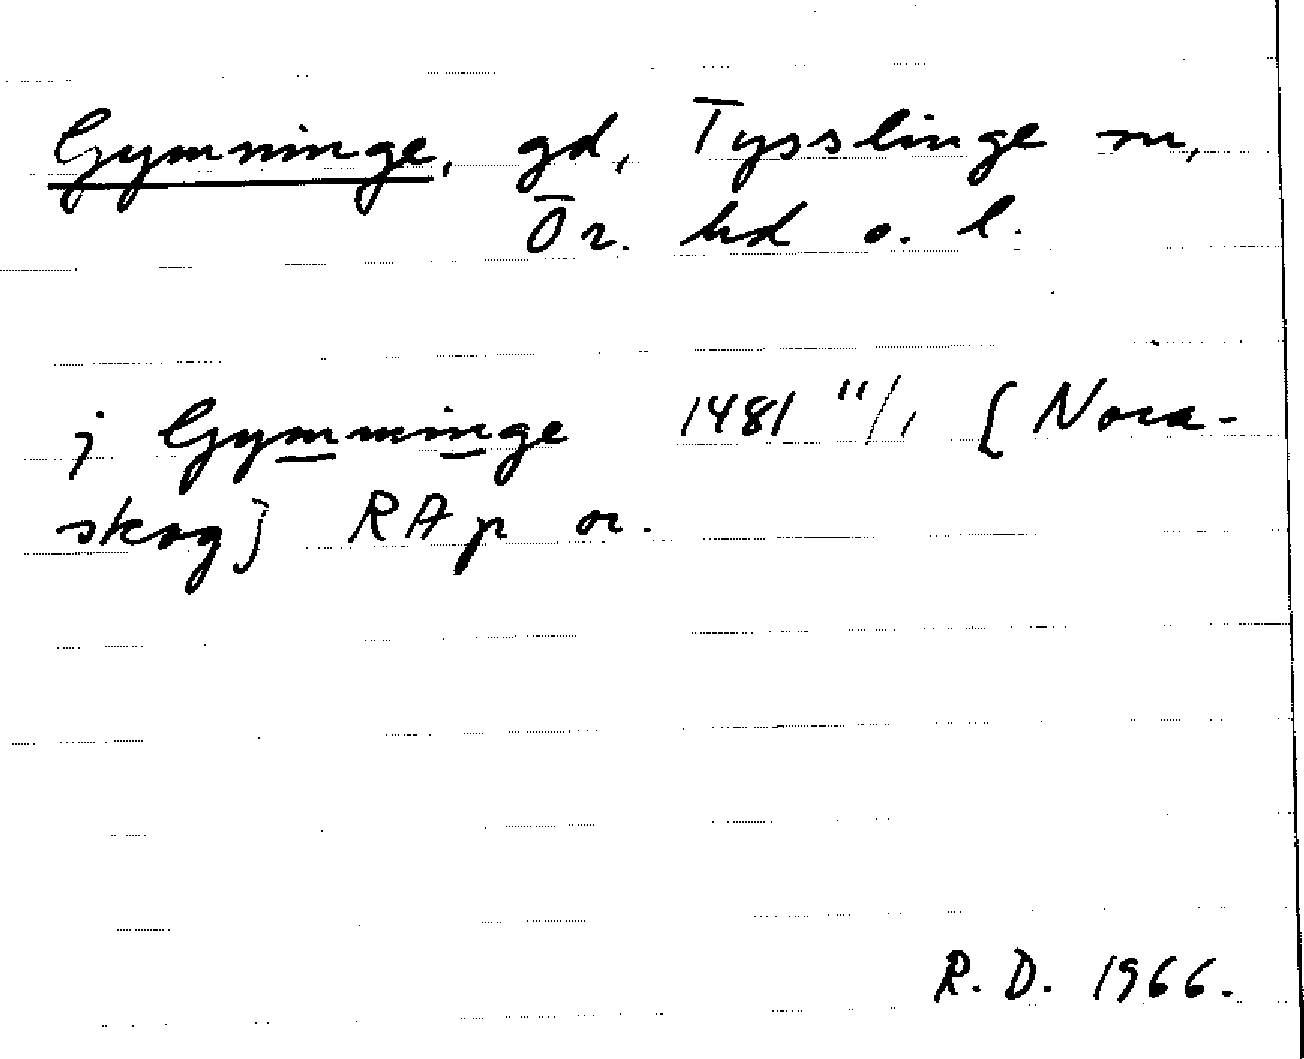 Gymninge, gd, Tysslinge sn,
Ör. hd o. l.
j Gymninge 1481 11/1 [Nora-
skog] RAp or.
R. D. 1966.